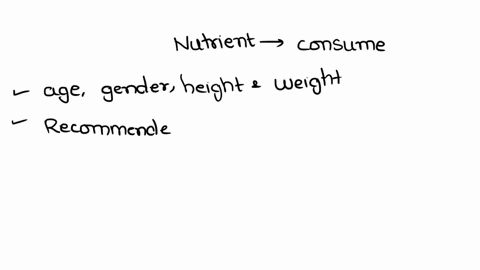 Nutrient → consume
✓ age, gender, height & weight
✓ Recommende